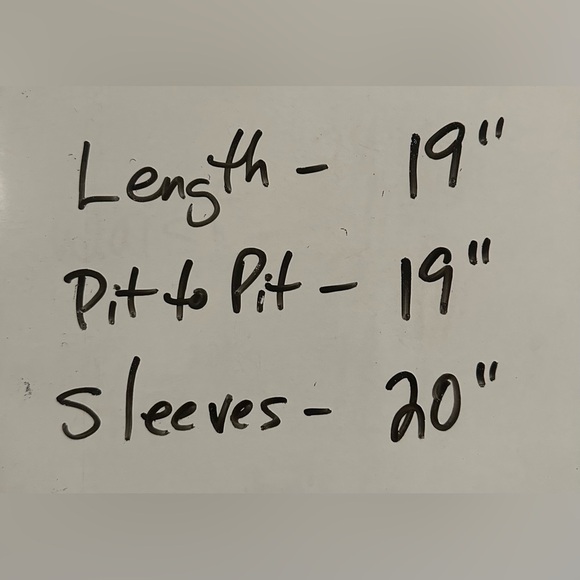 Length - 19"
Pit to Pit - 19"
Sleeves - 20"